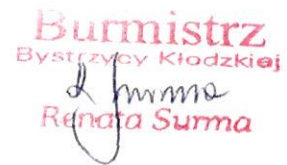 Burmistrz
Bystrzycy Kłodzkiej
R Surma
Renata Surma